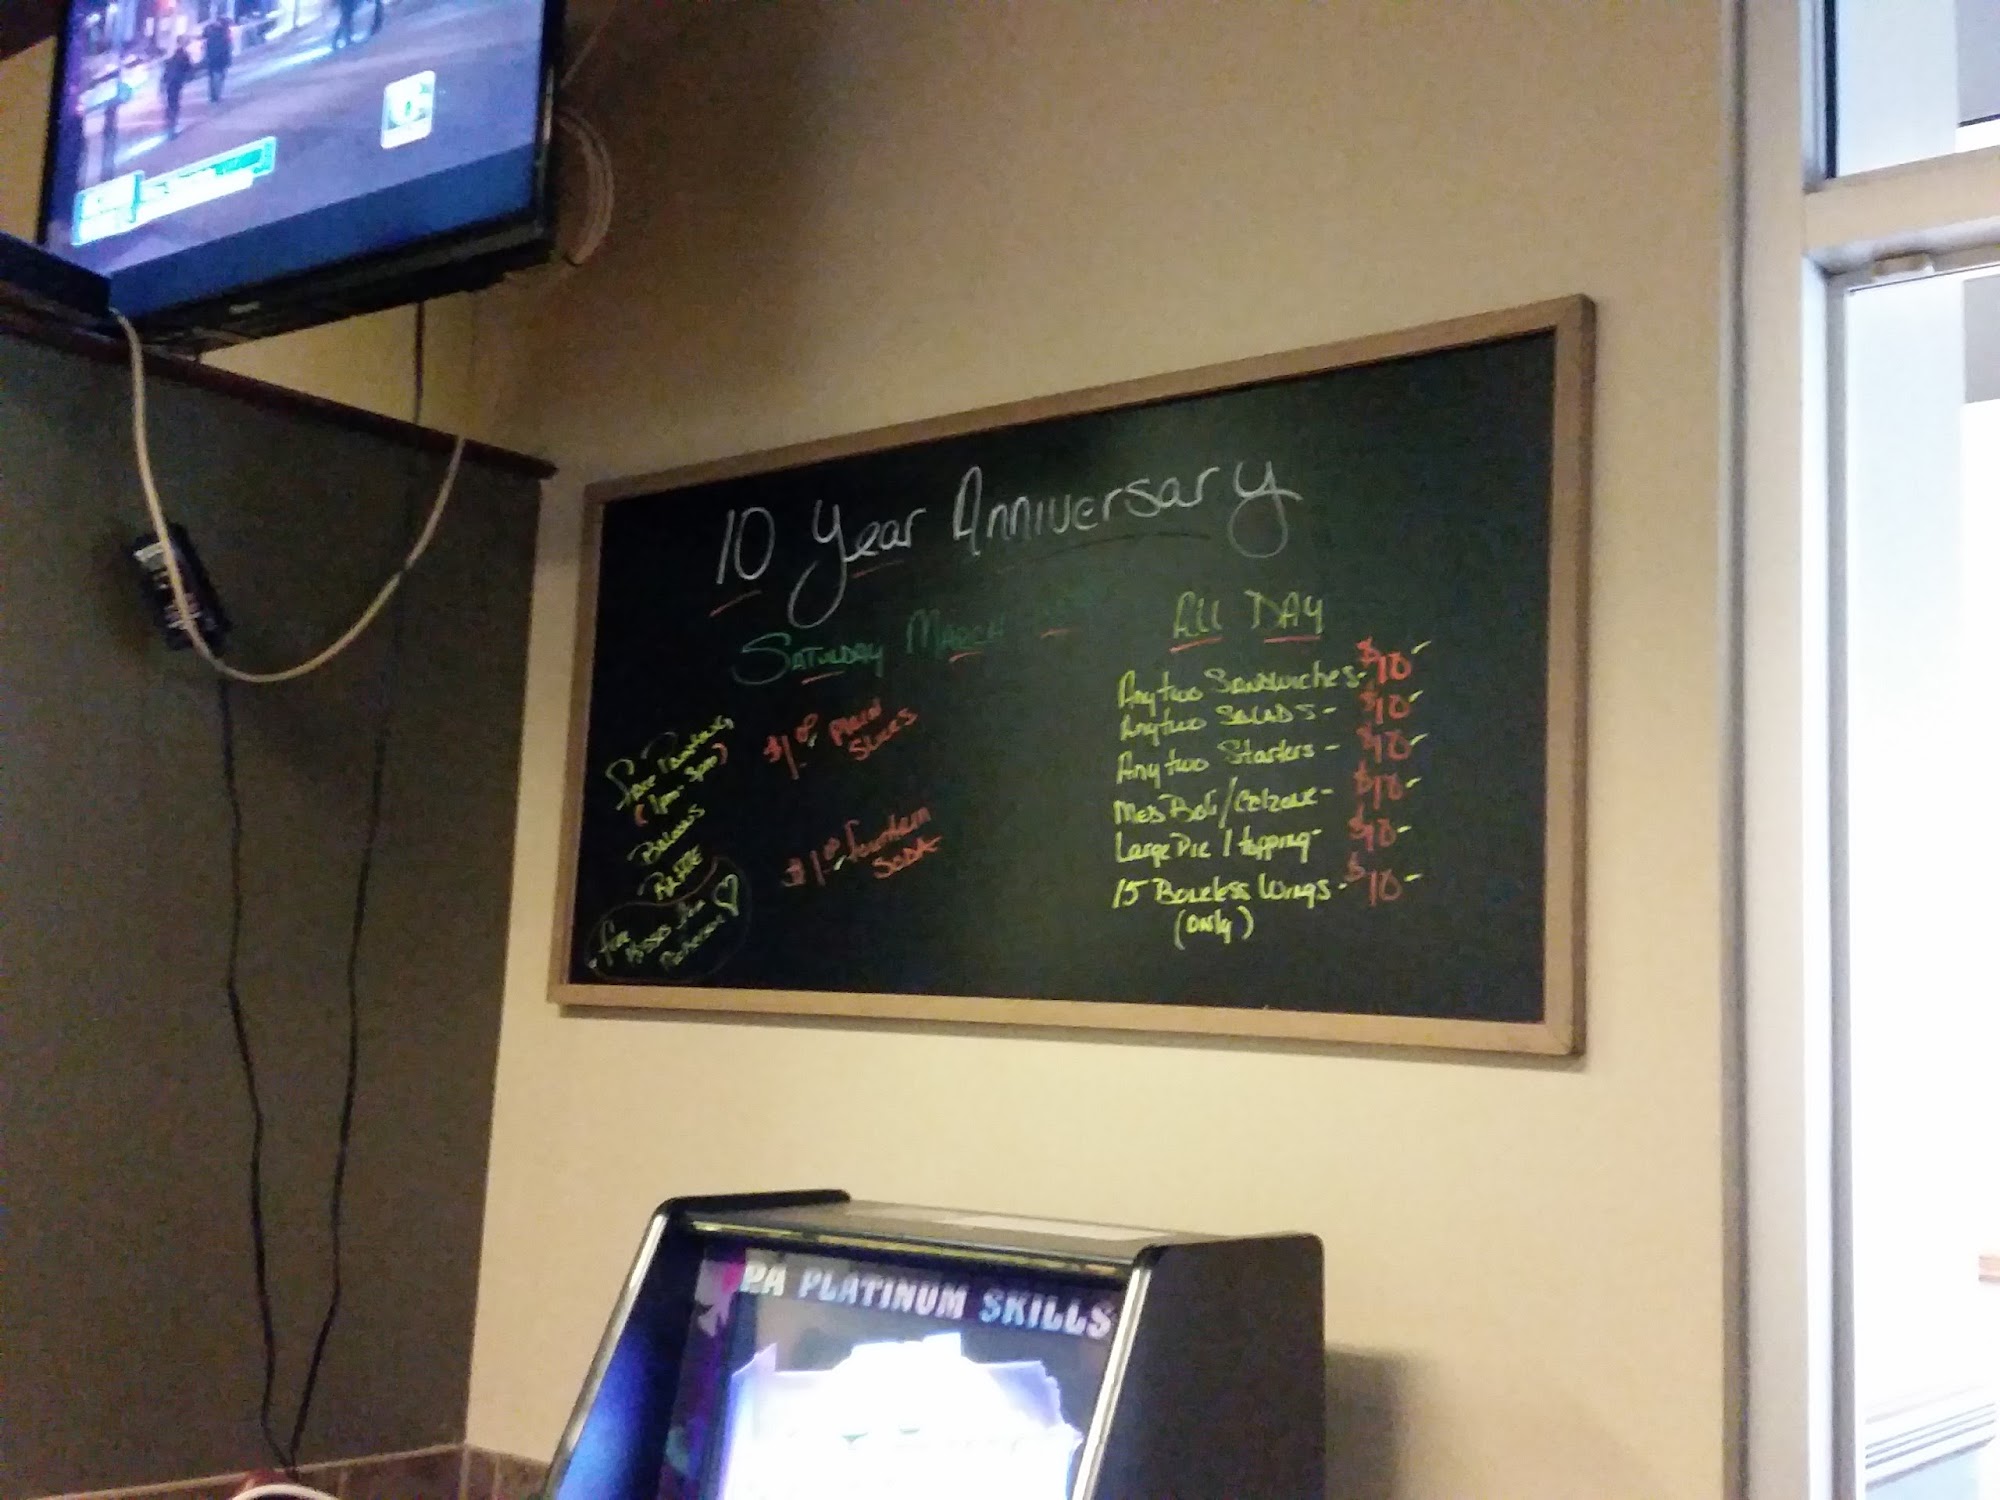 10 Year Anniversary
Saturday March
Face Painting
(1pm-3pm)
Balloons
Raffle
free
Kisses from
$1.00 Plain
Slices
$1.00 Fountain
Soda
All Day
Any two Sandwiches - $10-
Any two Salads - $10-
Any two Starters - $10-
Med Boli/Calzone - $10-
Large Pie 1 topping - $10-
15 Boneless Wings - $10-
(only)
PA PLATINUM SKILLS